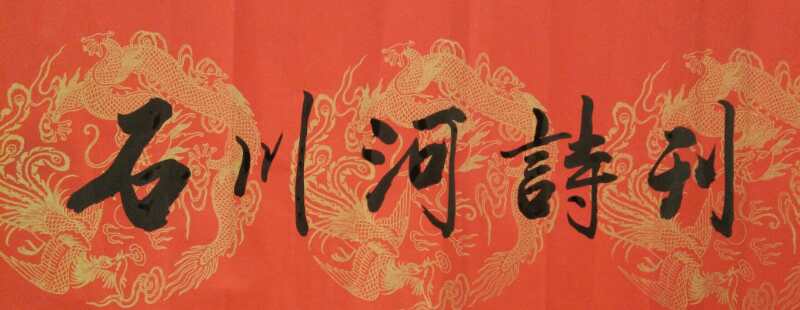 石川河詩刊